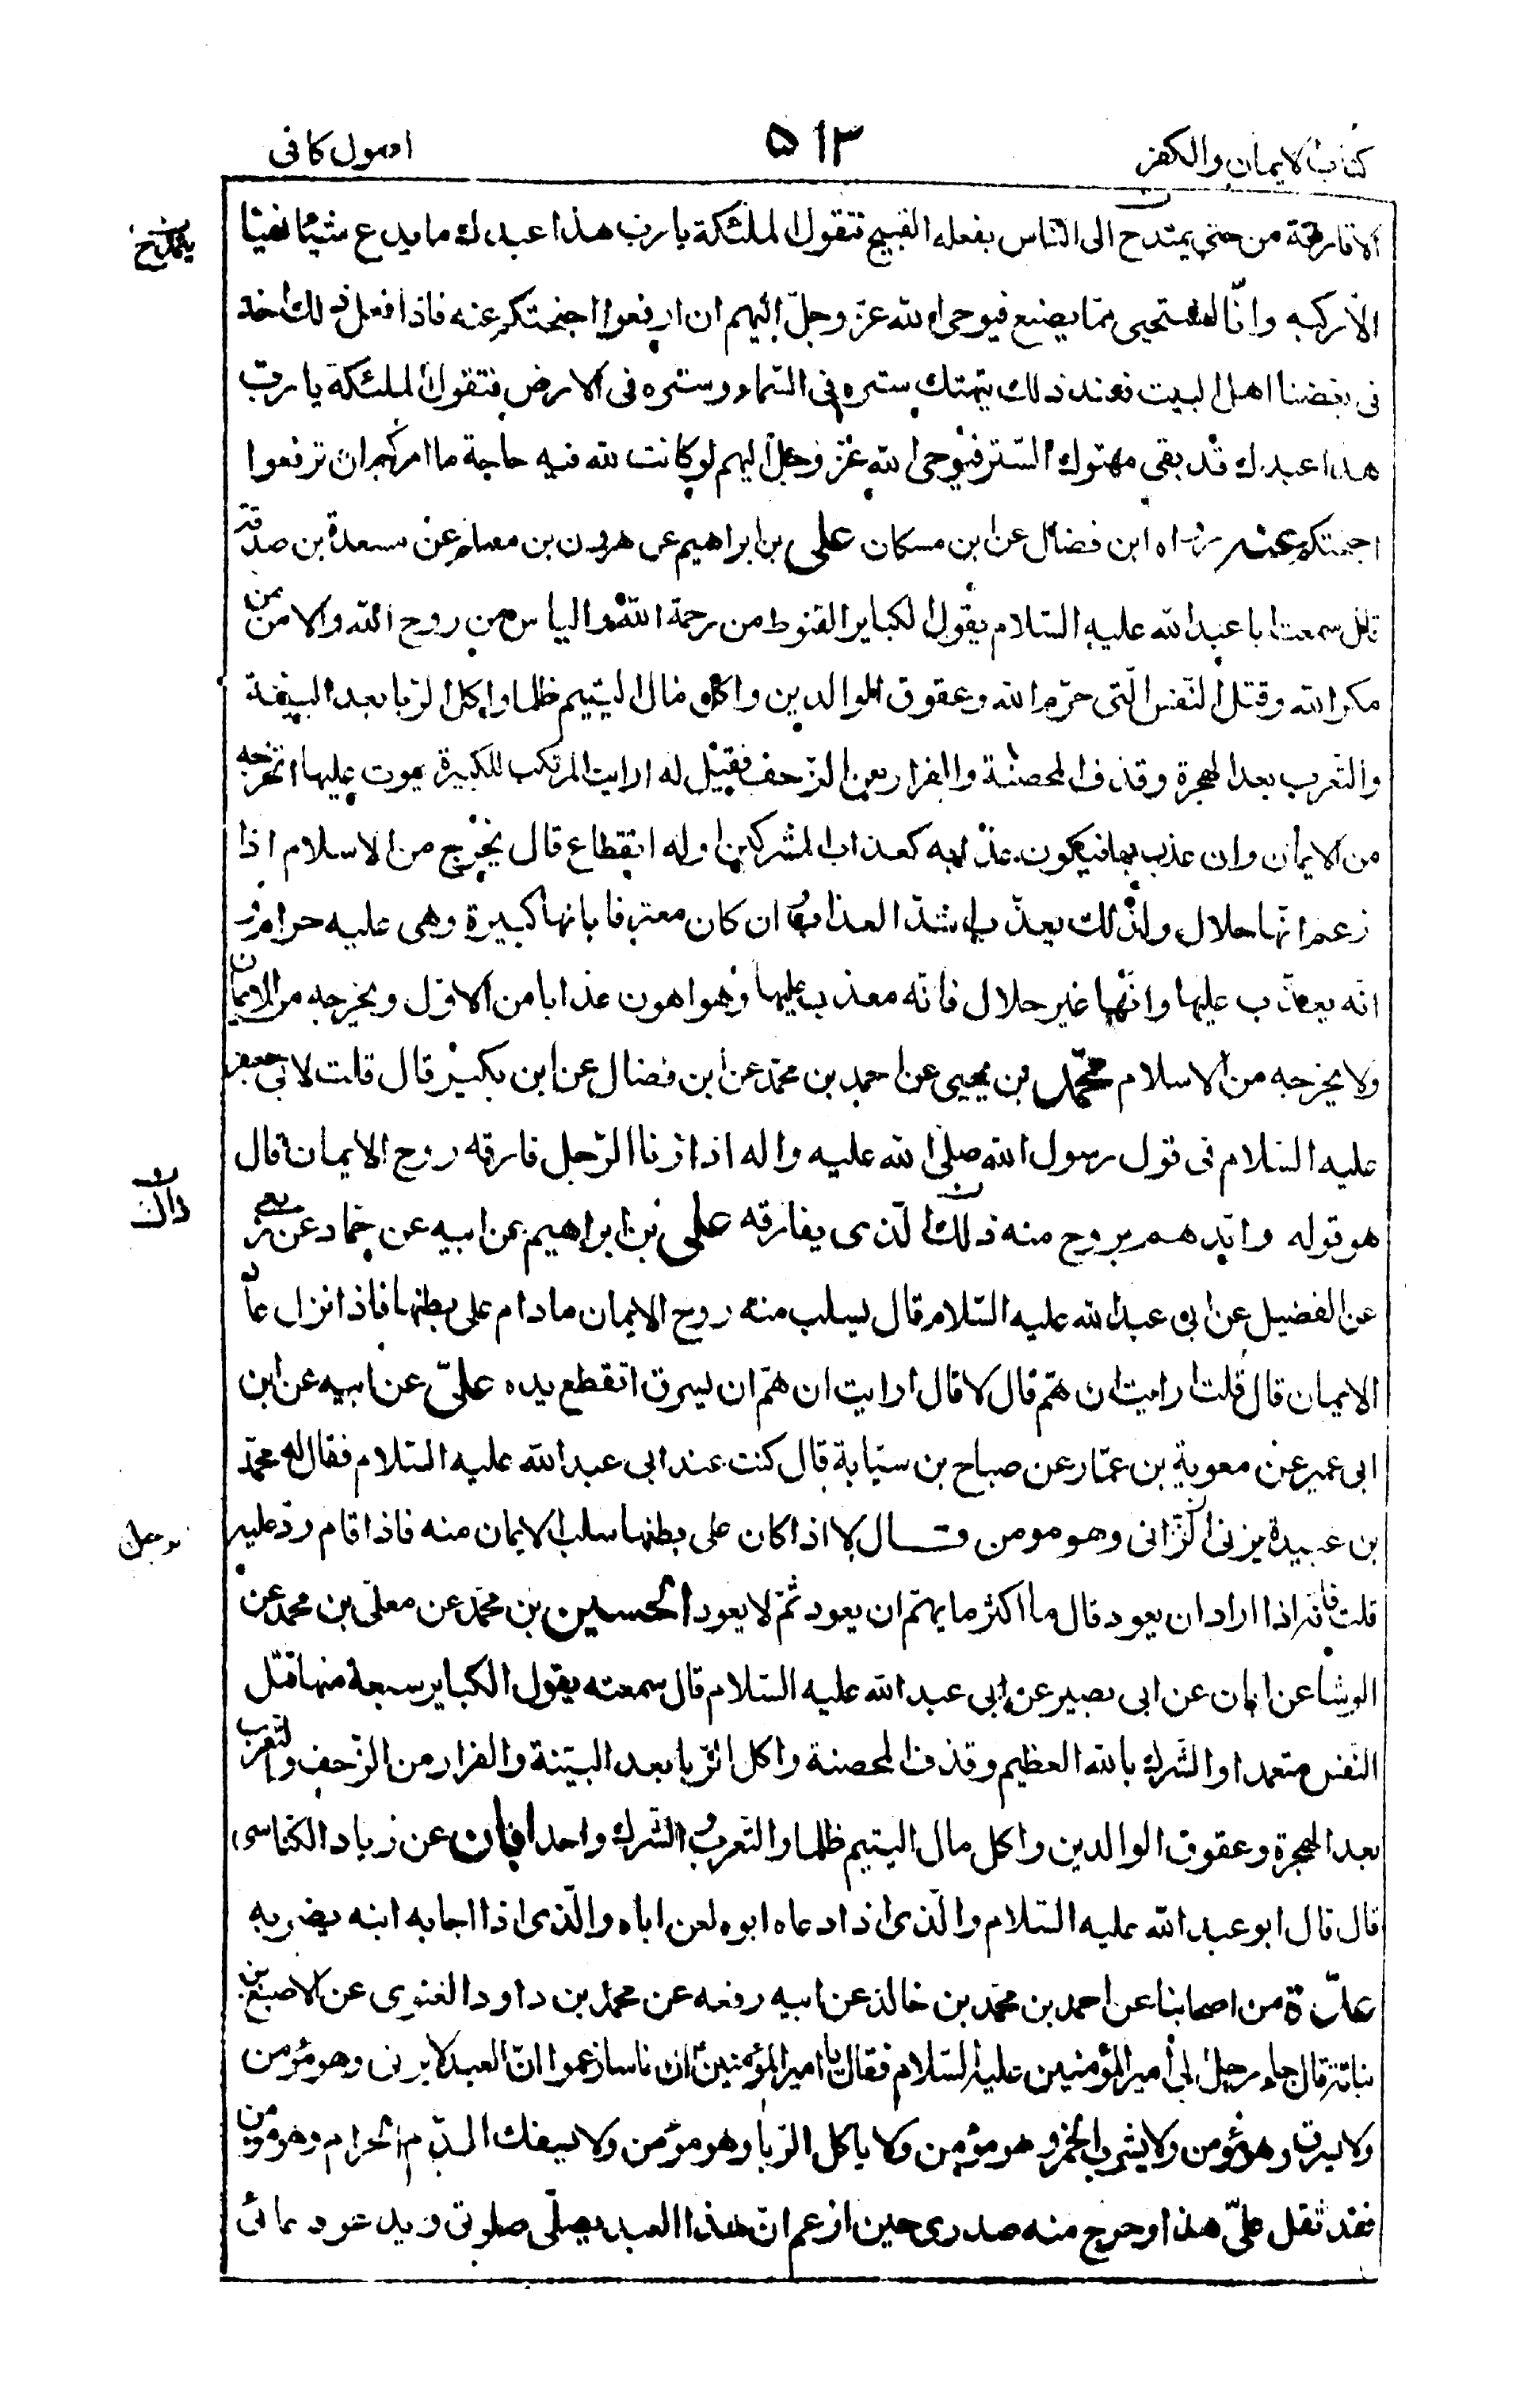 كتاب الايمان والكفر ۵۱۳ اصول كافى
الا قارفه من حتى يمتدح الى الناس بفعله القبيح فتقول الملئكة يا رب هذا عبدك ما يدع شيئا
يتمدح
الا ركبه وانا لنستحيى مما يصنع فيوحى الله عز وجل اليهم ان ارفعوا اجنحتكم عنه فاذا فعل ذلك اخذ
فى بغضنا اهل البيت فعند ذلك يتهتك ستره فى السماء وستره فى الارض فتقول الملئكة يا رب
هذا عبدك قد بقى مهتوك الستر فيوحى الله عز وجل اليهم لو كانت لله فيه حاجة ما امركم ان ترفعوا
اجنحتكم عنه رواه ابن فضال عن ابن مسكان على بن ابراهيم عن هرون بن مسلم عن مسعدة بن صدقة
قال سمعت ابا عبد الله عليه السلام يقول الكباير القنوط من رحمة الله والياس من روح الله والامن من
مكر الله وقتل النفس التى حرم الله وعقوق الوالدين واكل مال اليتيم ظلما واكل الربا بعد البينة
والتعرب بعد الهجرة وقذف المحصنة والفرار من الزحف فقيل له ارايت المرتكب للكبيرة يموت عليها اتخرجه
من الايمان وان عذب بها فيكون عذابه كعذاب المشركين او له انقطاع قال يخرج من الاسلام اذا
زعم انها حلال ولذلك يعذب باشد العذاب وان كان معترفا بانها كبيرة وهى عليه حرام و
انه يعذب عليها وانها غير حلال فانه معذب عليها وهو اهون عذابا من الاول ويخرجه من الايمان
ولا يخرجه من الاسلام محمد بن يحيى عن احمد بن محمد عن ابن فضال عن ابن بكير قال قلت لابى جعفر
عليه السلام فى قول رسول الله صلى الله عليه واله اذا زنا الرجل فارقه روح الايمان قال
هو قوله وايدهم بروح منه ذلك الذى يفارقه على بن ابراهيم عن ابيه عن حماد عن ربعى
ذاك
عن الفضيل عن ابى عبد الله عليه السلام قال يسلب منه روح الايمان ما دام على بطنها فاذا نزل عاد
الايمان قال قلت ارايت ان هم قال لا قال ارايت ان هم ان يسرق اتقطع يده على عن ابيه عن ابن
ابى عمير عن معوية بن عمار عن صباح بن سيابة قال كنت عند ابى عبد الله عليه السلام فقال له محمد
بن عبيدة يزنى الزانى وهو مومن قال لا اذا كان على بطنها سلب الايمان منه فاذا قام رد عليه
قلت فانه اذا اراد ان يعود قال ما اكثر ما يهم ان يعود ثم لا يعود الحسين بن محمد عن معلى بن محمد عن
الوشا عن ابان عن ابى بصير عن ابى عبد الله عليه السلام قال سمعته يقول الكباير سبعة منها قتل
النفس متعمدا والشرك بالله العظيم وقذف المحصنة واكل الربا بعد البينة والفرار من الزحف والتعرب
بعد الهجرة وعقوق الوالدين واكل مال اليتيم ظلما والتعرب و الشرك واحد ابان عن زياد الكناسى
قال قال ابو عبد الله عليه السلام والذى اذا دعاه ابوه لعن اباه والذى اذا اجابه ابنه يضربه
عدة من اصحابنا عن احمد بن محمد بن خالد عن ابيه رفعه عن محمد بن داود الغنوى عن الاصبغ بن
نباتة قال جاء رجل الى امير المؤمنين عليه السلام فقال يا امير المؤمنين ان ناسا زعموا ان العبد لا يزنى وهو مؤمن
ولا يسرق وهو مؤمن ولا يشرب الخمر و هو مؤمن ولا ياكل الربا وهو مؤمن ولا يسفك الدم الحرام وهو مؤمن
فقد ثقل على هذا وحرج منه صدرى حين ازعم ان هذا العبد يصلى صلوتى ويدعو دعائى